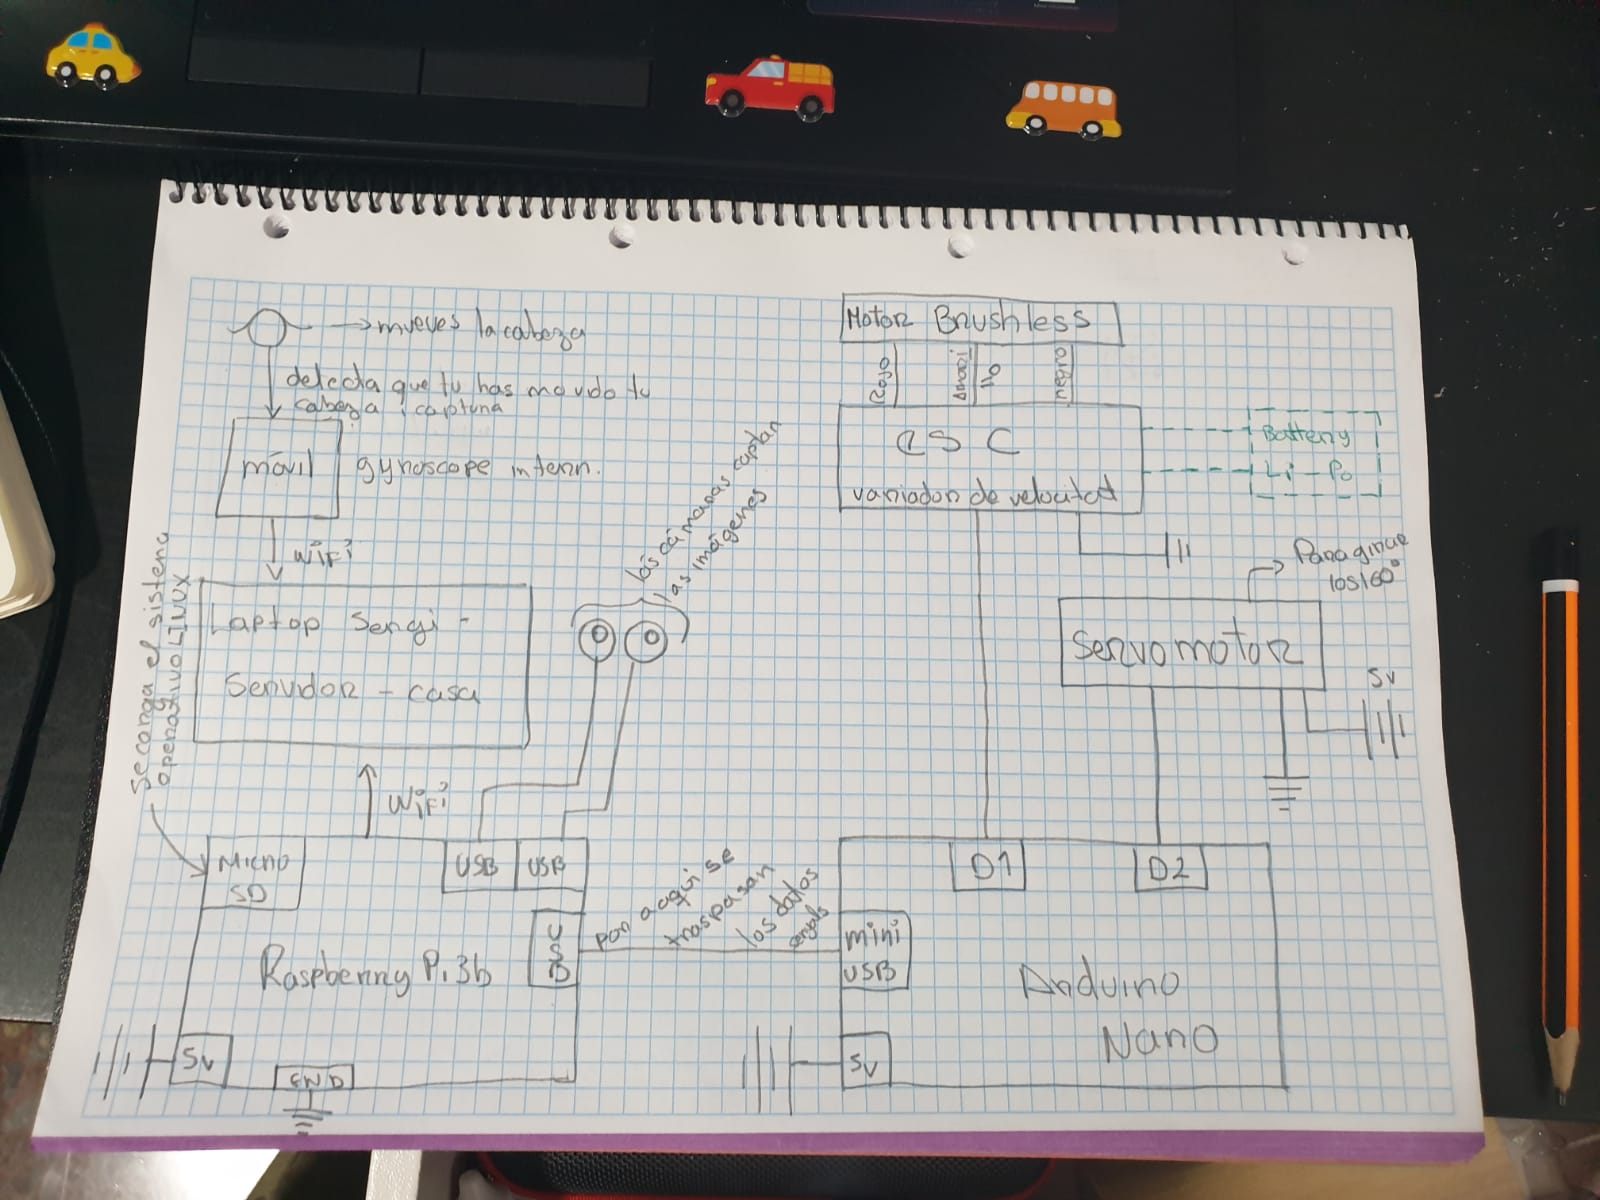 mueves la cabeza
detecta que tu has movido tu
cabeza i captura
móvil
gyroscope intern.
WiFi
Laptop Sergi -
Servidor - casa
WiFi
Se carga el sistema
operativo LINUX
las cámaras captan
las imágenes
Micro
SD
USB
USB
USB
Raspberry Pi 3b
5v
GND
por aaqui se
traspasan
los datos
Motor Brushless
Rojo
Amari
llo
ESC
variador de velocitat
Battery
Li-Po
Para girar
los 160°
Servomotor
5v
D1
D2
mini
USB
Arduino
Nano
5v